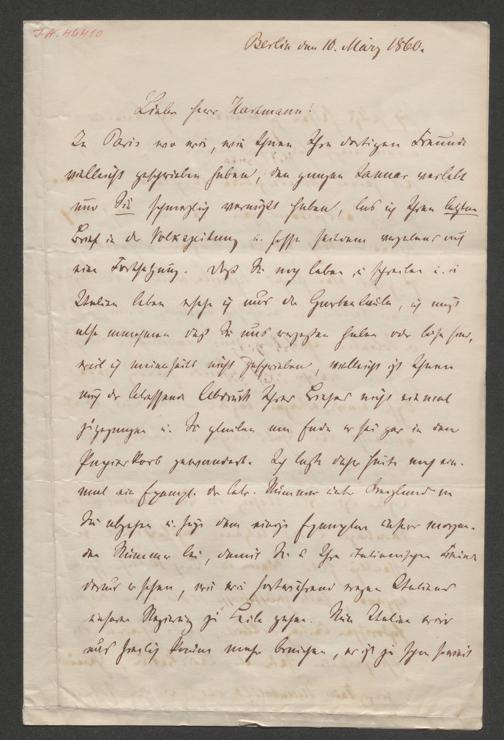 J.N. 46410
Berlin den 10. März 1860.
Lieber Herr Hartmann!
In Paris wo wir, wie Ihnen Ihre dortigen Freunde
vielleicht geschrieben haben, den ganzen Januar verlebt
und Sie schmerzlich vermißt haben, las ich Ihren letzten
Brief in der Volkszeitung u. hoffe seitdem vergebens auf
eine Fortsetzung. Daß Sie noch leben u. schreiben u. in
Italien leben ersehe ich aus der Gartenlaube, ich muß
also annehmen daß Sie uns vergessen haben oder böse sind,
weil ich meinerseits nicht geschrieben, vielleicht ist Ihnen
auch der Abdruck Ihres Briefes nicht einmal
zugegangen u. Sie glauben am Ende er sei gar in den
Papierkorb gewandert. Ich lasse daher heute noch ein-
mal ein Exempl. der betr. Nummer unter Kreuzband an
Sie abgehen u. füge dem einige Exemplare unserer morgen-
den Nummer bei, damit Sie u. Ihre italienischen Freunde
daraus ersehen, wie wir fortwährend wegen Italiens
unserer Regierung zu Leibe gehen. Mein Italien wird
uns freilich keine mehr brauchen, er ist ja schon soweit